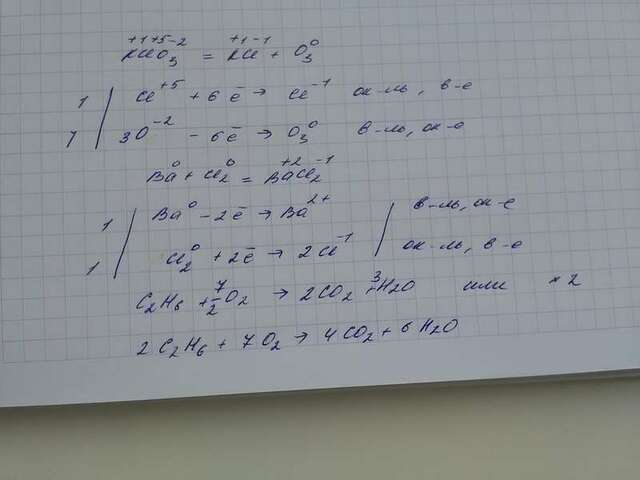 +1 +5 -2 +1 -1 0
KClO3 = KCl + O3
1 | Cl+5 + 6ē → Cl-1 ок-ль, в-е
1 | 3O-2 - 6ē → O3 0 в-ль, ок-е
Ba0 + Cl2 0 = Ba+2Cl2-1
1 | Ba0 - 2ē → Ba2+ | в-ль, ок-е
1 | Cl2 0 + 2ē → 2Cl-1 | ок-ль, в-е
C2H6 + 7/2 O2 → 2CO2 + 3H2O или × 2
2 C2H6 + 7 O2 → 4CO2 + 6 H2O